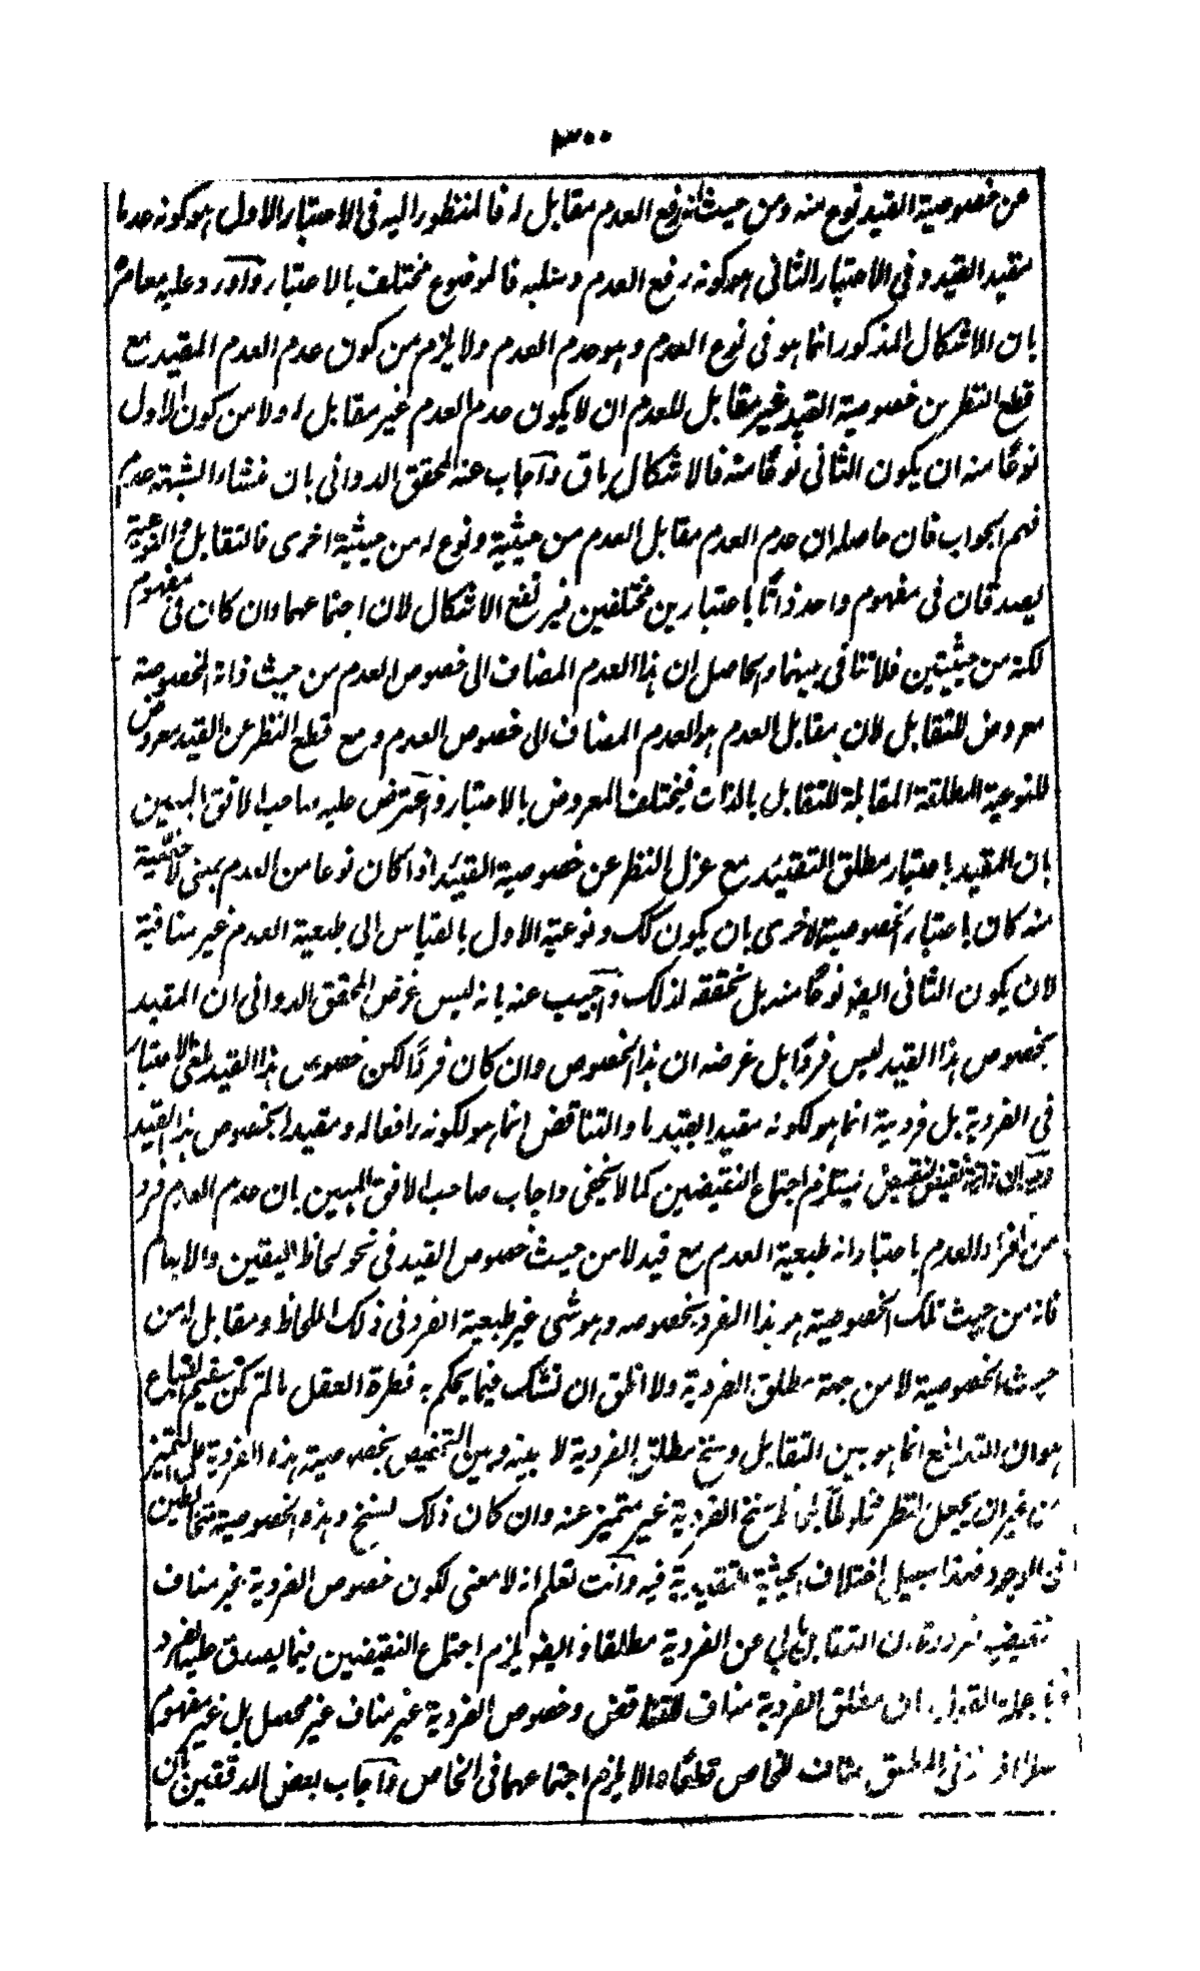 ٣٠٠
عن خصوصية القيد نوع منه ومن حيث انه رفع العدم مقابل له فالمنظور اليه فى الاعتبار الاول هو كونه عدما
مقيد القيد و فى الاعتبار الثانى هو كونه رفع العدم وسلبه فالموضوع مختلف بالاعتبار واورد عليه معاصره
بان الاشكال المذكور انما هو فى نوع العدم وهو عدم العدم ولا يلزم من كون عدم العدم المقيد مع
قطع النظر من خصوصية القيد غير مقابل للعدم ان لا يكون عدم العدم غير مقابل له ولا من كون الاول
نوعًا منه ان يكون الثانى نوعًا منه فالاشكال باق واجاب عنه المحقق الدوانى بان منشاء الشبهة عدم
فهم الجواب فان حاصله ان عدم العدم مقابل العدم من حيثية ونوع له من حيثية اخرى فالتقابل والنوعية
يصدقان فى مفهوم واحد ذاتًا باعتبارين مختلفين فيرتفع الاشكال لان اجتماعهما وان كان فى مفهوم
لكنه من حيثيتين فلا تنافى بينهما والحاصل ان هذا العدم المضاف الى خصوص العدم من حيث ذاته المخصوصة
معروض للتقابل لان مقابل العدم هو العدم المضاف الى خصوص العدم ومع قطع النظر عن القيد معروض
للنوعية المطلقة المقابلة للتقابل بالذات فيختلف المعروض بالاعتبار واعترض عليه صاحب الافق المبين
بان المقيد باعتبار مطلق التقييد مع عزل النظر عن خصوصية القيد اذا كان نوعا من العدم بمعنى لاحيثية
منه كان باعتبار الخصوصية الاخرى بان يكون كك ونوعية الاول بالقياس الى طبعية العدم غير منافية
لان يكون الثانى ايضه نوعًا منه بل محققه لذلك واجيب عنه بانه ليس غرض المحقق الدوانى ان المقيد
بخصوص هذا القيد ليس فردًا بل غرضه ان هذا الخصوص وان كان فردًا لكن خصوص هذا القيد ملغى الاعتبار
فى الفردية بل فردية انما هو لكونه مقيدا بقيد ما والتناقض انما هو لكونه رافعا له ومقيدا بخصوص هذا القيد
نقيض فيستلزم اجتماع النقيضين كما لا يخفى واجاب صاحب الافق المبين بان عدم العدم فرد
من افراد العدم باعتبار انه طبعية العدم مع قيد لا من حيث خصوص القيد فى نحو لحاظ اليقين والابهام
فانه من حيث تلك الخصوصية هو هذا الفرد بخصوصه وهو شى غير طبعية الفرد فى ذلك اللحاظ ومقابل له من
حيث الخصوصية لا من جهة مطلق الفردية ولا اظن ان نشك فيما يحكم به فطرة العقل ما لم تكن سقيم الطباع
هو ان التدافع انما هو بين التقابل وسنخ مطلق الفردية لا بينه وبين التخصيص بخصوصية هذه الفردية على التميز
من غير ان يجعل النظر سنخ الفردية غير متميز عنه وان كان ذلك السنخ وهذه الخصوصية متخالطين
فى الوجود فهذا سبيل اختلاف الحيثية التقييدية فيه وانت تعلم انه لا معنى لكون خصوص الفردية غير مناف
نقيضيه ضرورة ان التقابل يابى عن الفردية مطلقا وايضه يلزم اجتماع النقيضين فيما يصدق عليه الفرد
القول ان مطلق الفردية مناف للتناقض وخصوص الفردية غير مناف غير محصل بل غير مفهوم
المطلق مناف للخاص قطعًا والا لا يلزم اجتماعهما فى الخاص واجاب بعض المدققين بان